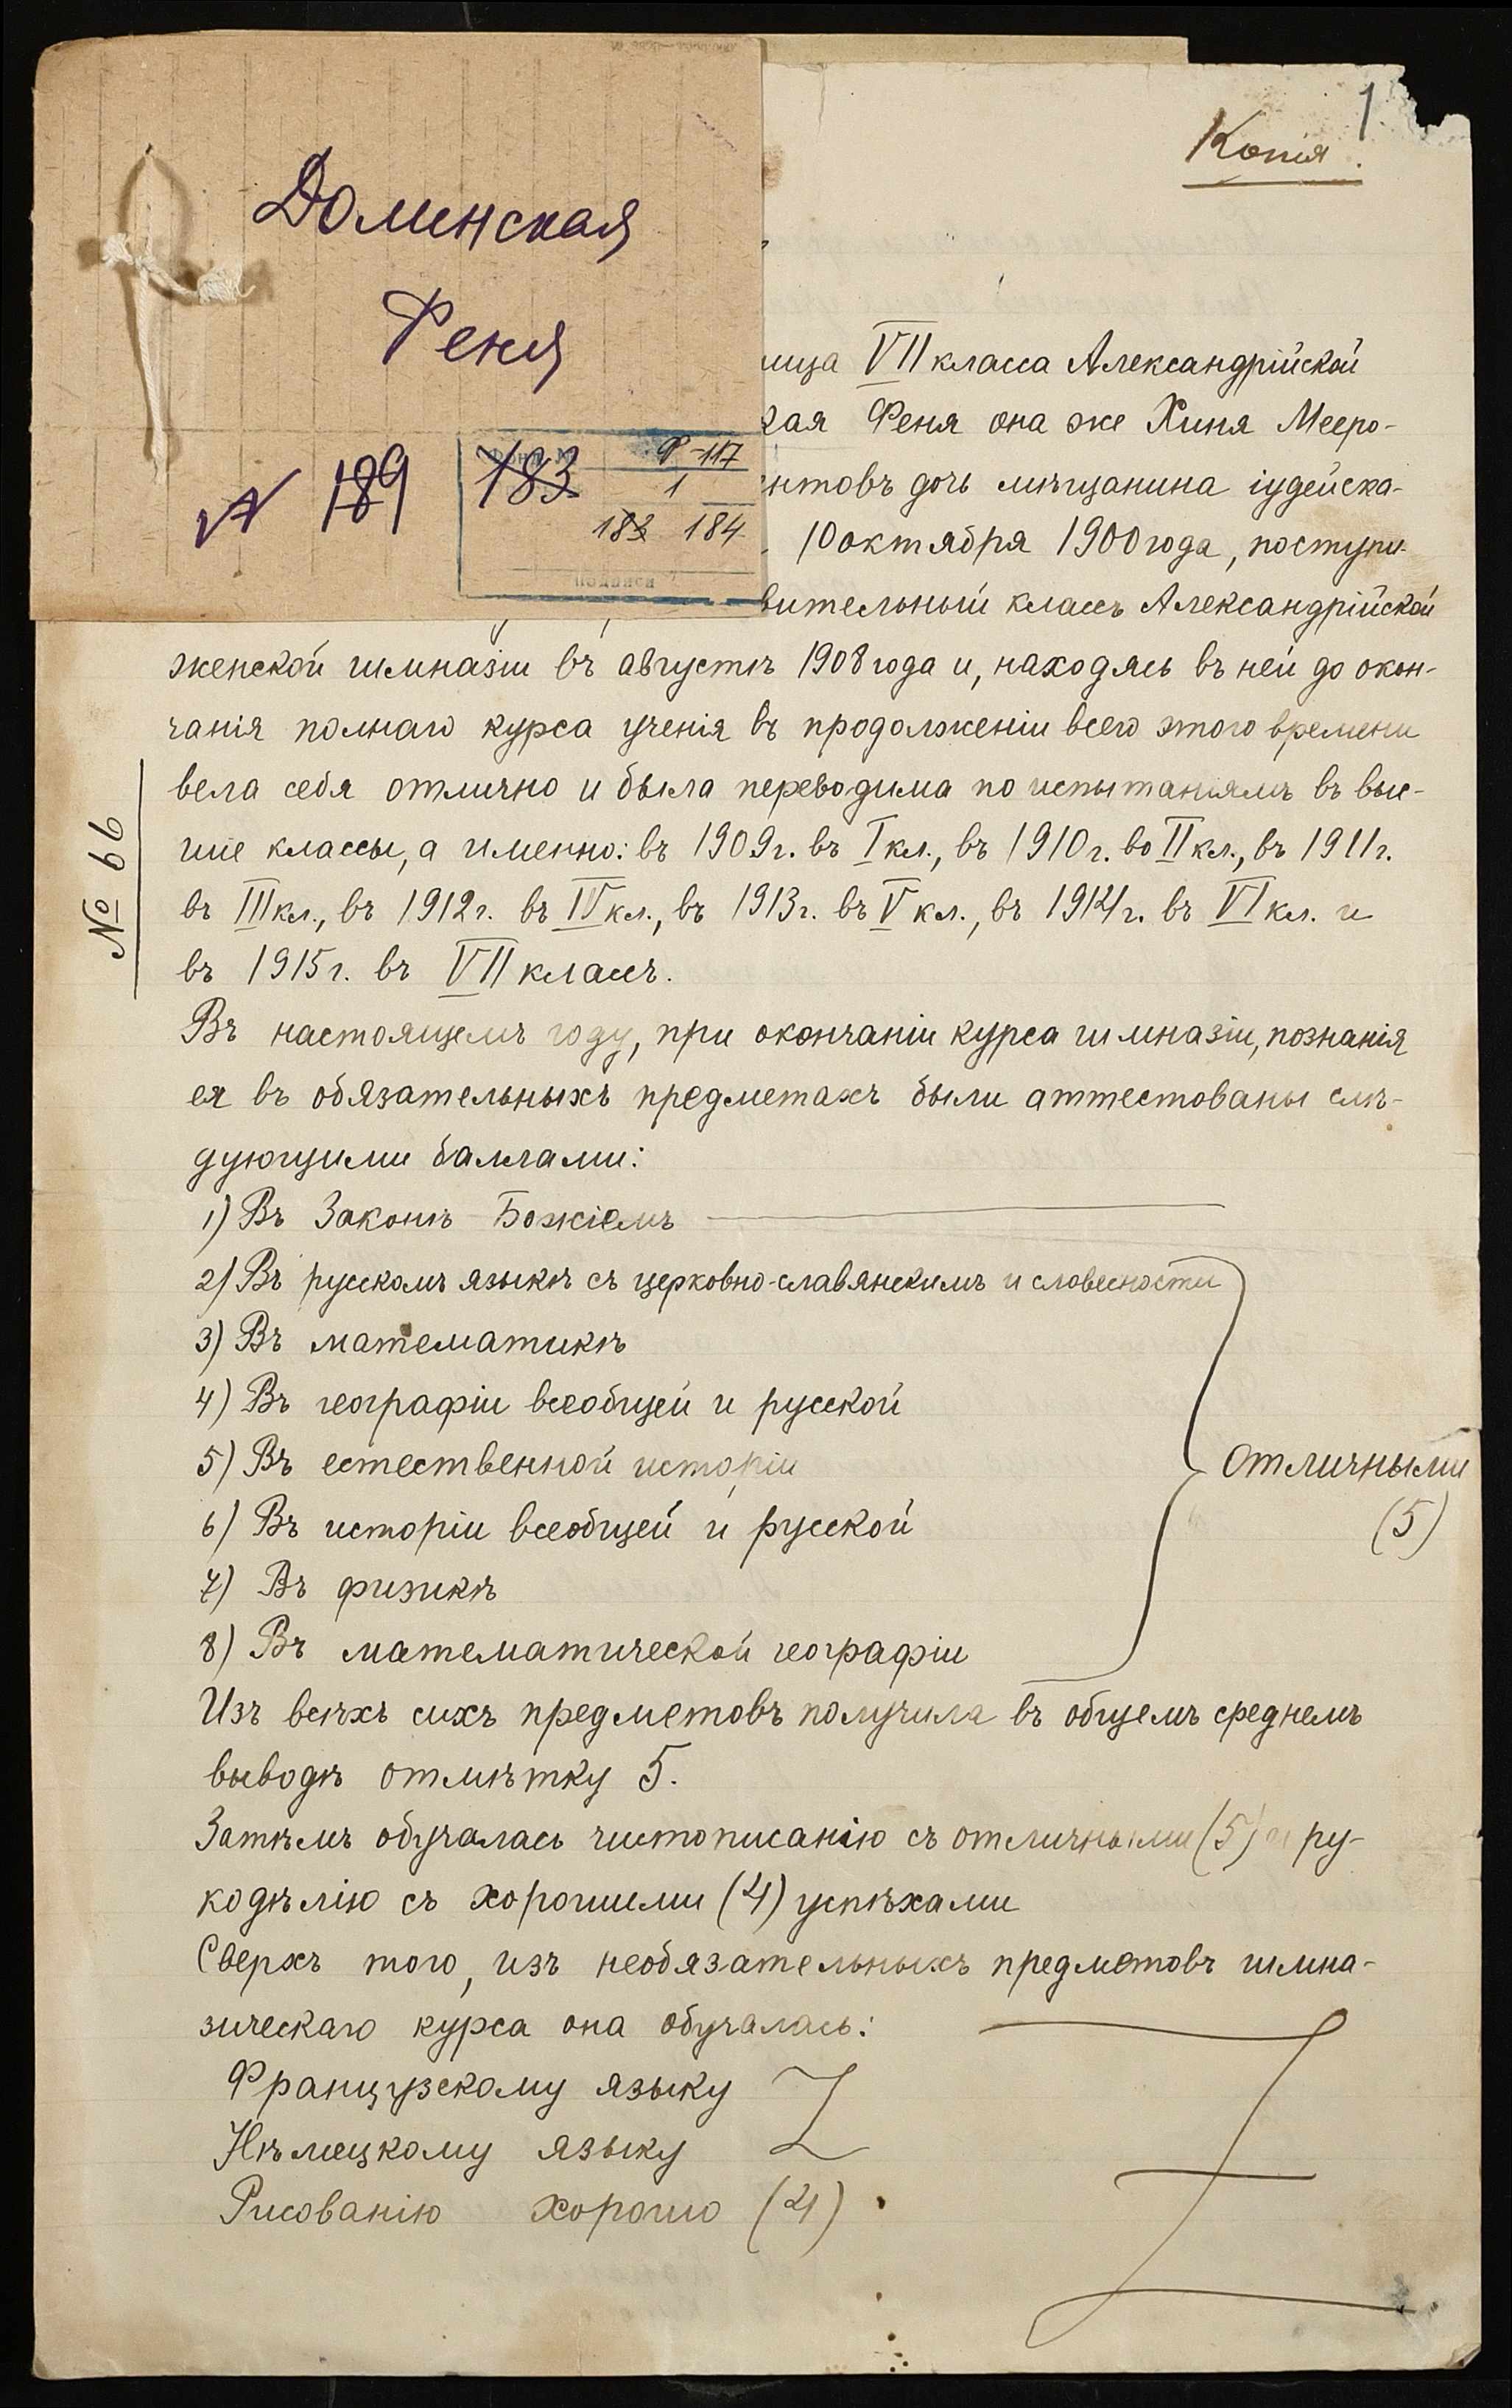 Доминская
Феня
N 189
183
Ф-117
1
183 184
1
Копія.
ица VII класса Александрійской
кая Феня она же Хиня Мееро-
нтовъ дочь мѣщанина іудейска-
10 октября 1900 года, поступи-
вительный классъ Александрійской
женской гимназіи въ августѣ 1908 года и, находясь въ ней до окон-
чанія полнаго курса ученія въ продолженіи всего этого времени
вела себя отлично и была переводима по испытаніямъ въ выс-
шіе классы, а именно: въ 1909г. въ I кл., въ 1910г. во II кл., въ 1911г.
въ III кл., въ 1912г. въ IV кл., въ 1913г. въ V кл., въ 1914г. въ VI кл. и
въ 1915г. въ VII классъ.
№ 66
Въ настоящемъ году, при окончаніи курса гимназіи, познанія
ея въ обязательныхъ предметахъ были аттестованы слѣ-
дующими баллами:
1) Въ Законѣ Божіемъ
2) Въ русскомъ языкѣ съ церковно-славянскимъ и словесности
3) Въ математикѣ
4) Въ географіи всеобщей и русской
5) Въ естественной исторіи
6) Въ исторіи всеобщей и русской
7) Въ физикѣ
8) Въ математической географіи
отличными
(5)
Изъ всѣхъ сихъ предметовъ получила въ общемъ среднемъ
выводѣ отмѣтку 5.
Затѣмъ обучалась чистописанію съ отличными (5) и ру-
кодѣлію съ хорошими (4) успѣхами
Сверхъ того, изъ необязательныхъ предметовъ гимна-
зическаго курса она обучалась:
Французскому языку
Нѣмецкому языку
Рисованію хорошо (4)